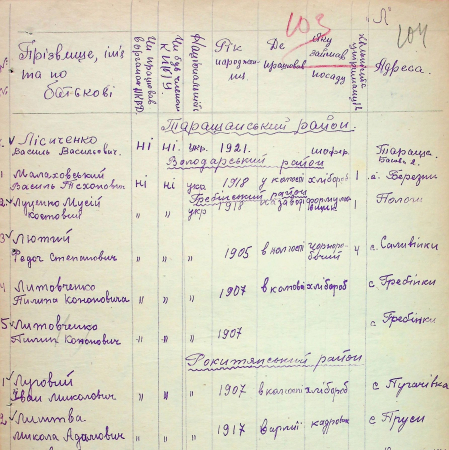 103
Л
104
Прізвище, ім'я та по батькові
Чи працював в органах НКВД
Чи був членом КП/б/У
Національність
Рік народжен.
Де працював
Яку займав посаду
Кількість утриманців
Адреса.
Таращанський район.
✓ Лісиченко Василь Васильович. Ні Ні. укр. 1921. шофер. Тараща
Володарський район
1 Малаховський Василь Тихонович Ні ні укр 1918 у колгосп хлібороб 1 с. Березни
Гребінський район
2 ✓ Луценко Мусій Костович " " укр 1918 1 Пологи
3 ✓ Лютий Федос Степанович " " 1905 в колгосп чорноробочий 4 с. Саливінки
4 Литовченко Пилип Кононовича " " 1907 в колгосп хлібороб с Гребінки
5 ✓ Литовченко Пилип Кононович " " 1907 с Гребінки
Рокитянський район
1 ✓ Луговий Іван Миколович " " 1907 в колгосп хлібороб с Пугачівка
2 ✓ Литва Микола Адамович " " 1917 В армії кадрова с Пруси